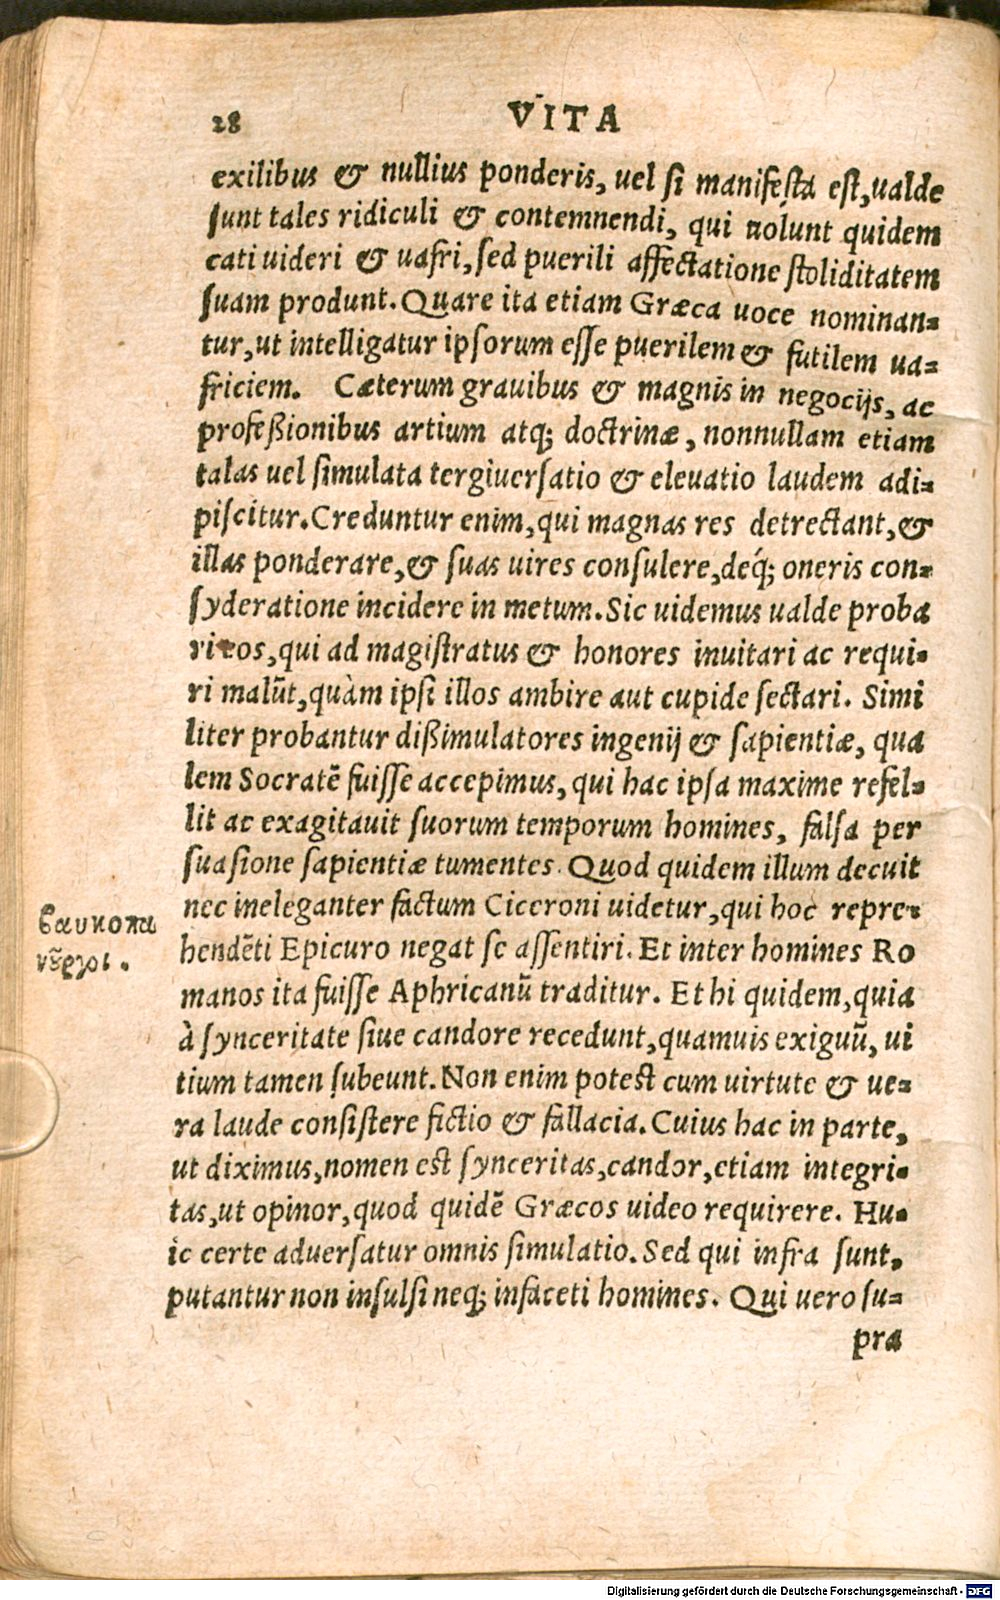 28 VITA
exilibus & nullius ponderis, uel si manifesta est, ualde
sunt tales ridiculi & contemnendi, qui uolunt quidem
cati uideri & uafri, sed puerili affectatione stoliditatem
suam produnt. Quare ita etiam Græca uoce nominan=
tur, ut intelligatur ipsorum esse puerilem & futilem ua=
friciem. Cæterum grauibus & magnis in negocijs, ac
profeßionibus artium atq; doctrinæ, nonnullam etiam
talas uel simulata tergiuersatio & eleuatio laudem adi=
piscitur. Creduntur enim, qui magnas res detrectant, &
illas ponderare, & suas uires consulere, deq́; oneris con=
syderatione incidere in metum. Sic uidemus ualde proba
riros, qui ad magistratus & honores inuitari ac requi=
ri malūt, quàm ipsi illos ambire aut cupide sectari. Simi
liter probantur dißimulatores ingenij & sapientiæ, qua
lem Socratē fuisse accepimus, qui hac ipsa maxime refel=
lit ac exagitauit suorum temporum homines, falsa per
suasione sapientiæ tumentes. Quod quidem illum decuit
nec ineleganter factum Ciceroni uidetur, qui hoc repre=
βαυκοπα
hendēti Epicuro negat se assentiri. Et inter homines Ro
νȣ͂ργοι.
manos ita fuisse Aphricanū traditur. Et hi quidem, quia
à synceritate siue candore recedunt, quamuis exiguū, ui
tium tamen subeunt. Non enim potest cum uirtute & ue=
ra laude consistere fictio & fallacia. Cuius hac in parte,
ut diximus, nomen est synceritas, candor, etiam integri=
tas, ut opinor, quod quidē Græcos uideo requirere. Hu=
ic certe aduersatur omnis simulatio. Sed qui infra sunt,
putantur non insulsi neq; infaceti homines. Qui uero su=
pra
Digitalisierung gefördert durch die Deutsche Forschungsgemeinschaft - DFG